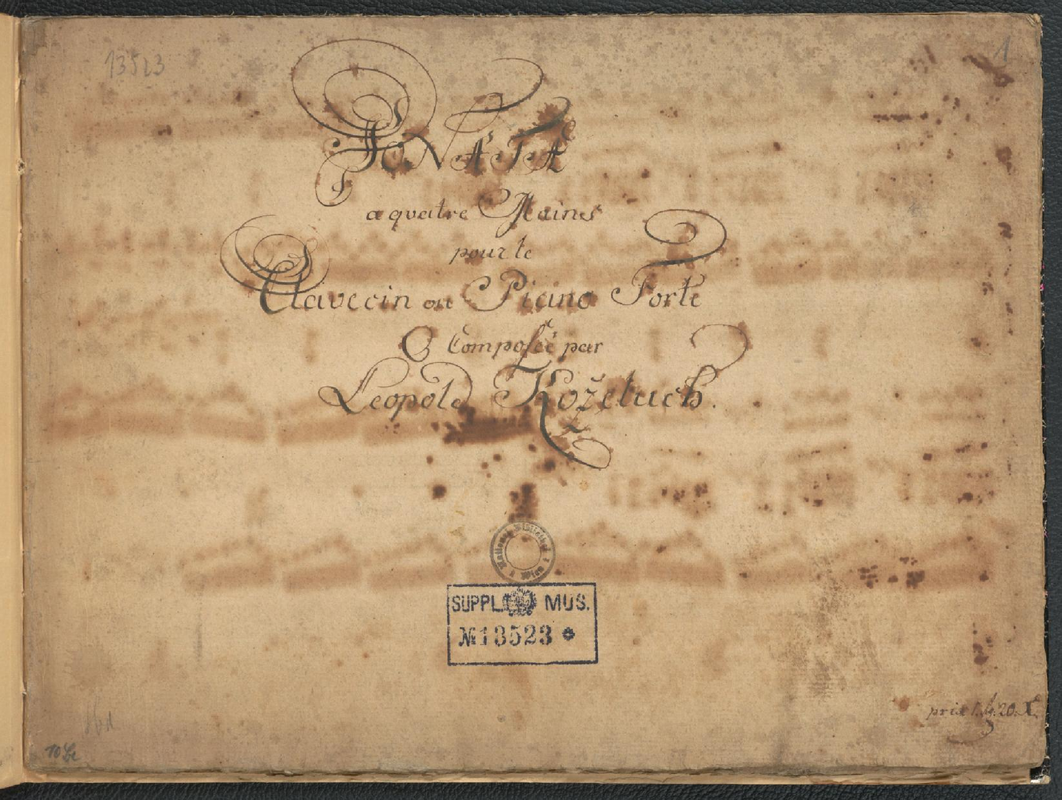 13523
1
SONATA
a quatre Mains
pour le
Clavecin ou Piano Forte
Composée par
Leopold Koželuch.
SUPPL. MUS.
№13523 *